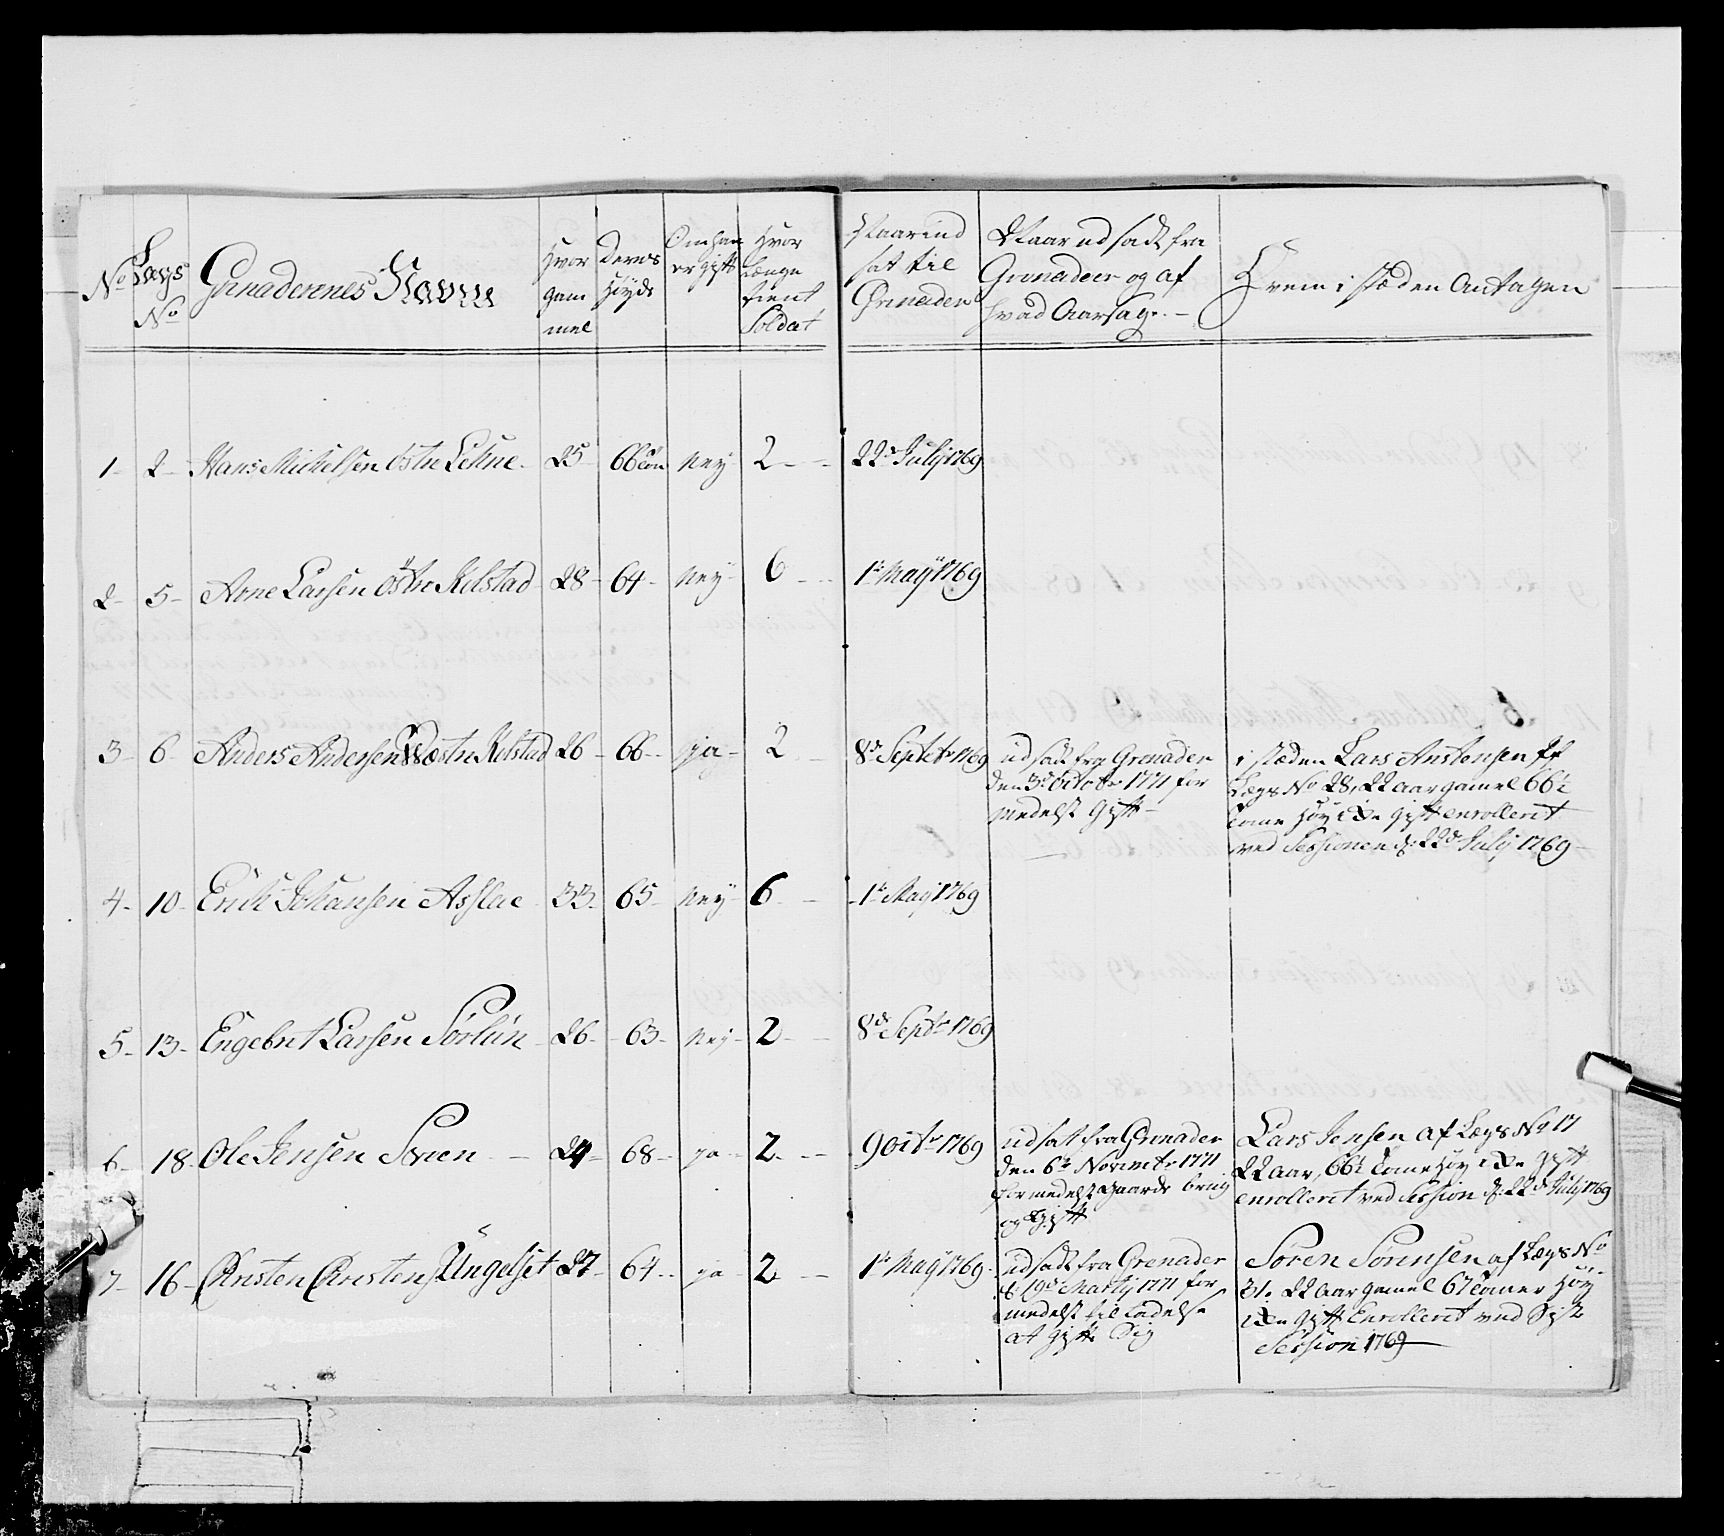 No Lægs No Grenaderenes Navne Hvor gam mel Deres Høyde Om han er gift Hvor længe tient Soldat Naar ind sat til Grenadeer Naar udsadt fra Grenadeer og af hvad Aarsag. Hvem i stæden Antagen
1 2 Hans Michelsen Østre Lehne 25 66 ney 2 22d July 1769
2 5 Arne Larsen Østre Kilstad 28 64 ney 6 1te May 1769
3 6 Anders Andersen Wæstre Kilstad 26 66 ja 2 8de Septebr 1769
udsadt fra Grenader
den 3de Octobr 1771 for
medelst Gift
i stæden Lars Anstensen af
Lægs No 28, 22 aar gamel 66½
Tome Høy icke gift enrollerit
ved Sessionen d. 22de July 1769
4 10 Erich Johansen Asslae 33 65 ney 6 1te May 1769
5 13 Engebret Larsen Sørlün 26 63 ney 2 8de Septr 1769
6 18 Ole Jensen Svien 24 68 ja 2 9 Octr 1769
udsatt fra Grenader
den 6te Novembr 1771
formedelst Gaards brug
og Gift
Lars Jensen af Lægs No 17
22 aar, 66½ Tome Høy icke gift
enrollerit ved Session d. 22de July 1769
7 16 Christen Christens Üngelset 27 64 ja 2 1te May 1769
udsadt fra Grenader
d. 19de Martij 1771 for
medelst tilladelse
at gifte Sig
Søren Sørensen af Lægs No
31. 22 aar gamel 67 Tomer Høy
icke gift Enrollerit ved Siste
Session 1769